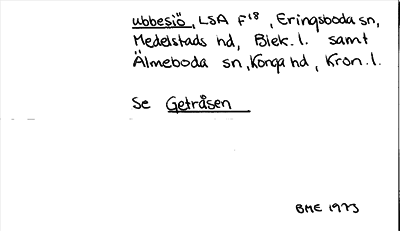 ubbesjö, LSA F18, Eringsboda sn,
Medelstads hd, Blek. l. samt
Älmeboda sn, Konga hd, Kron. l.
Se Getråsen
BME 1973